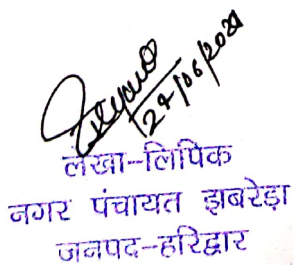 24/06/2021
लेखा-लिपिक
नगर पंचायत झबरेड़ा
जनपद-हरिद्वार